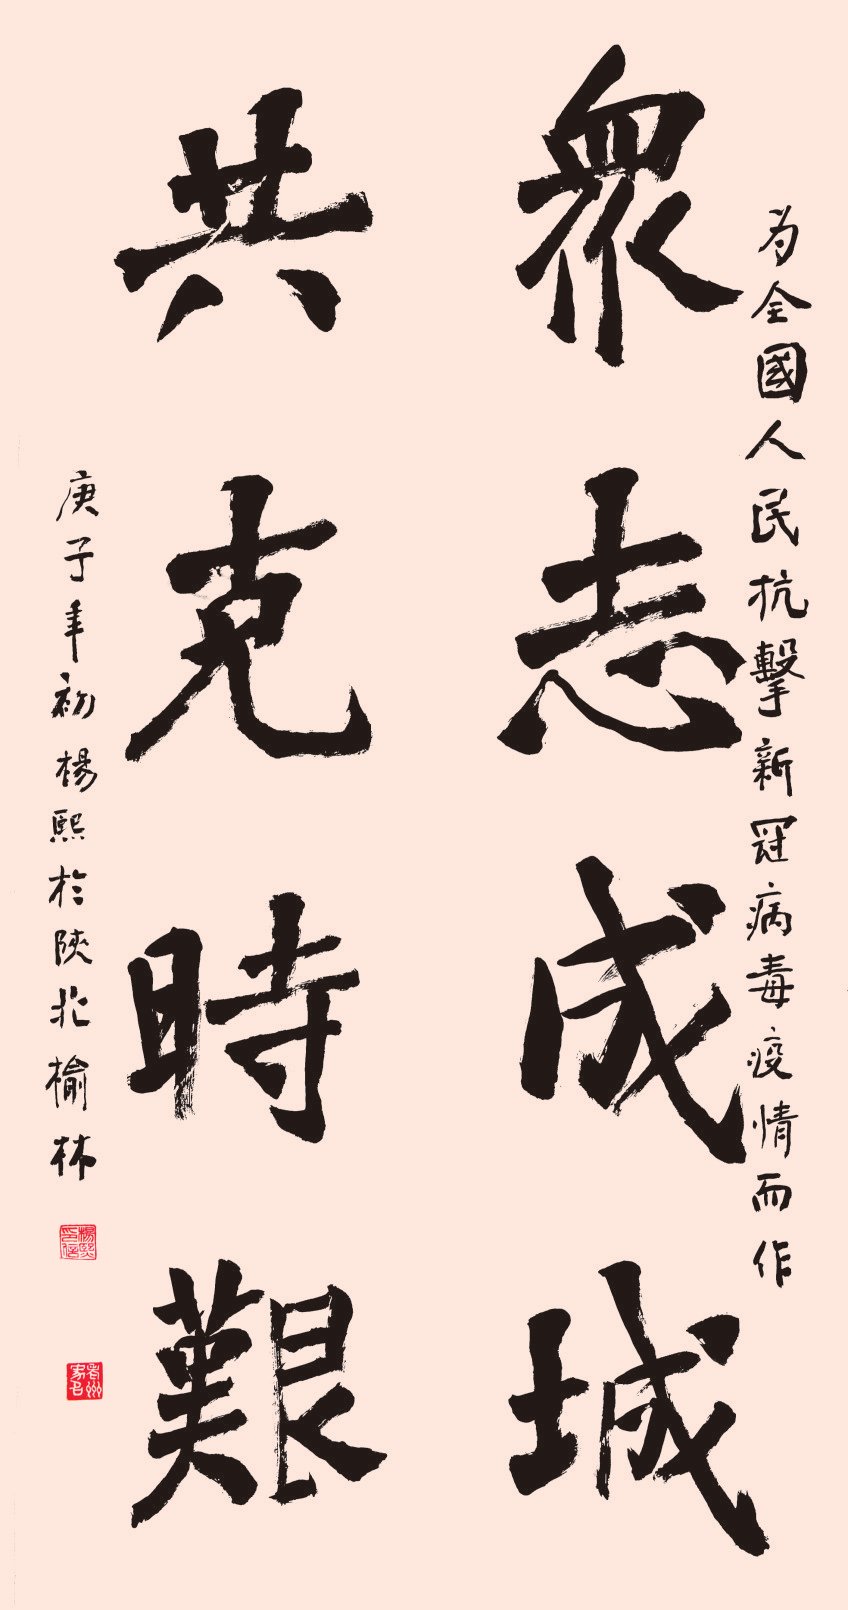 为全國人民抗擊新冠病毒疫情而作
眾志成城
共克時艱
庚子年初楊熙於陝北榆林
楊熙印信